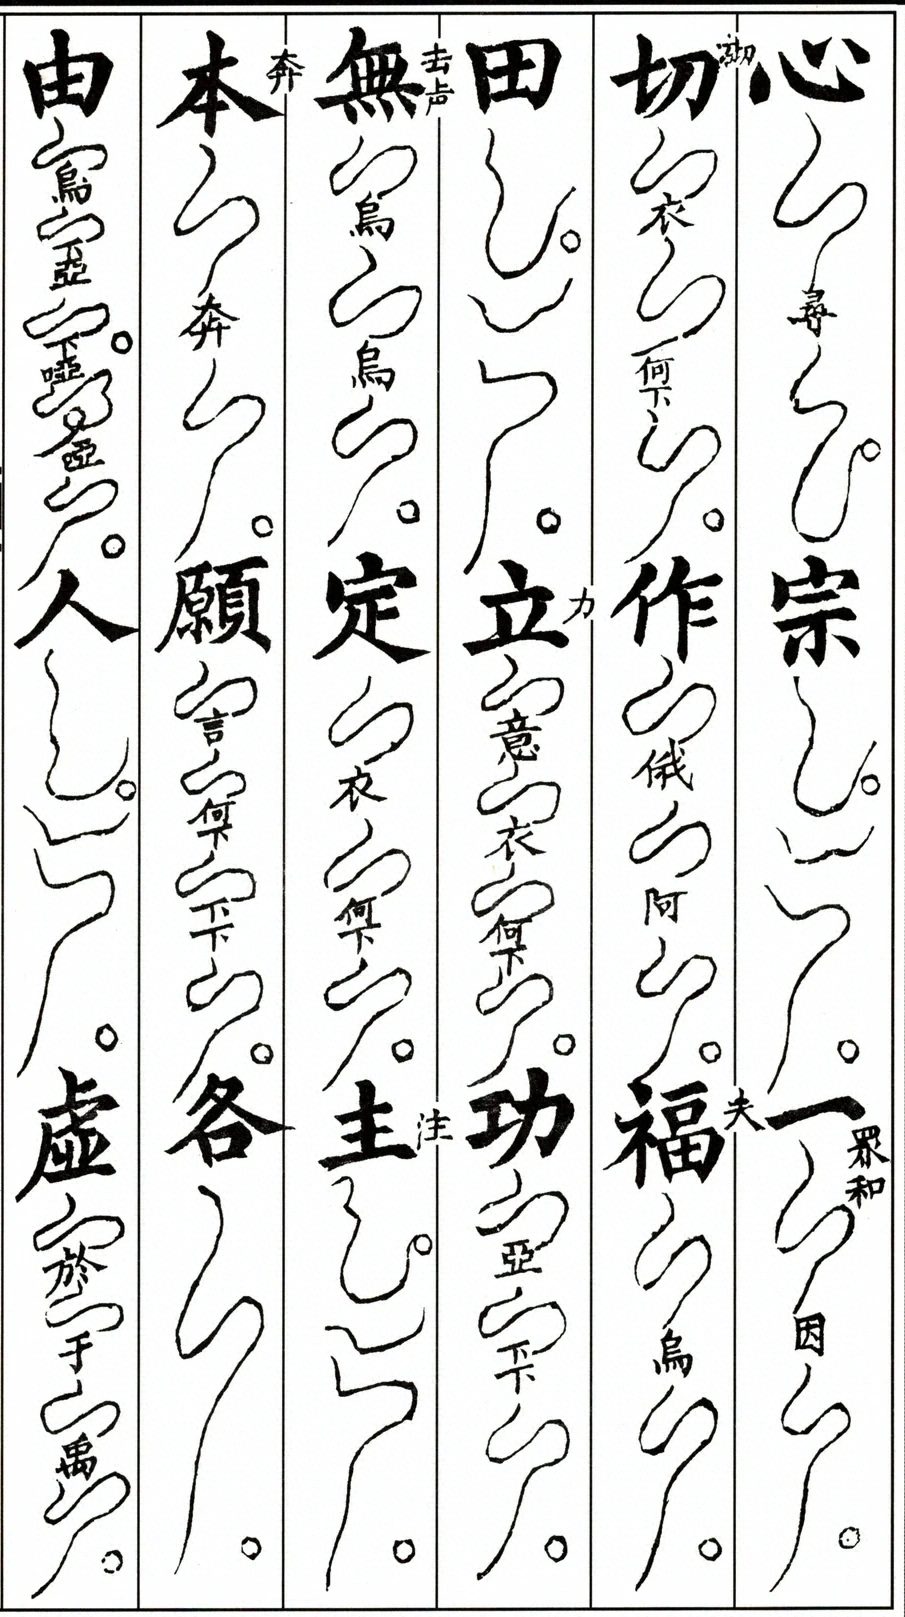 心尋宗一眾和因
切衣何下作俄阿福夫烏
田立力意衣何下功亞下下
無去声烏烏定衣何下主注
本奔奔願言何下下下各
由烏亞下啞啞人虛於于禹